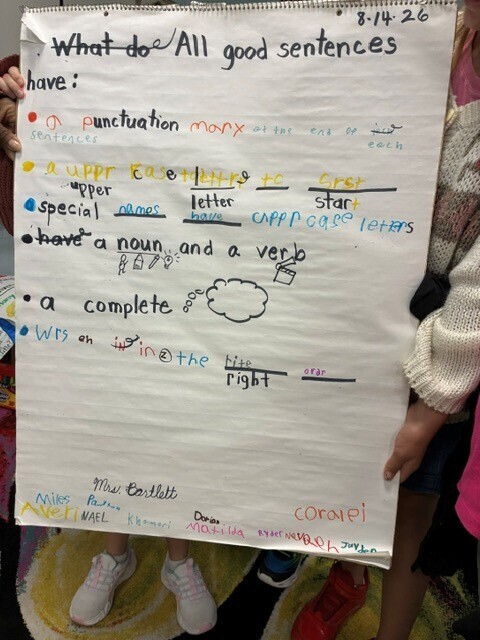 8.14.26
What do All good sentences
have:
• a punctuation marx at the end of each
sentences
• a uppr case letters to start
upper letter start
• special names have upper case letters
• have a noun and a verb
• a complete
• Wrs en in in ② the rite orar
right
Mrs. Bartlett
Miles
Averi NAEL Khamari Dorian Matilda Ryder coralei
Jayden